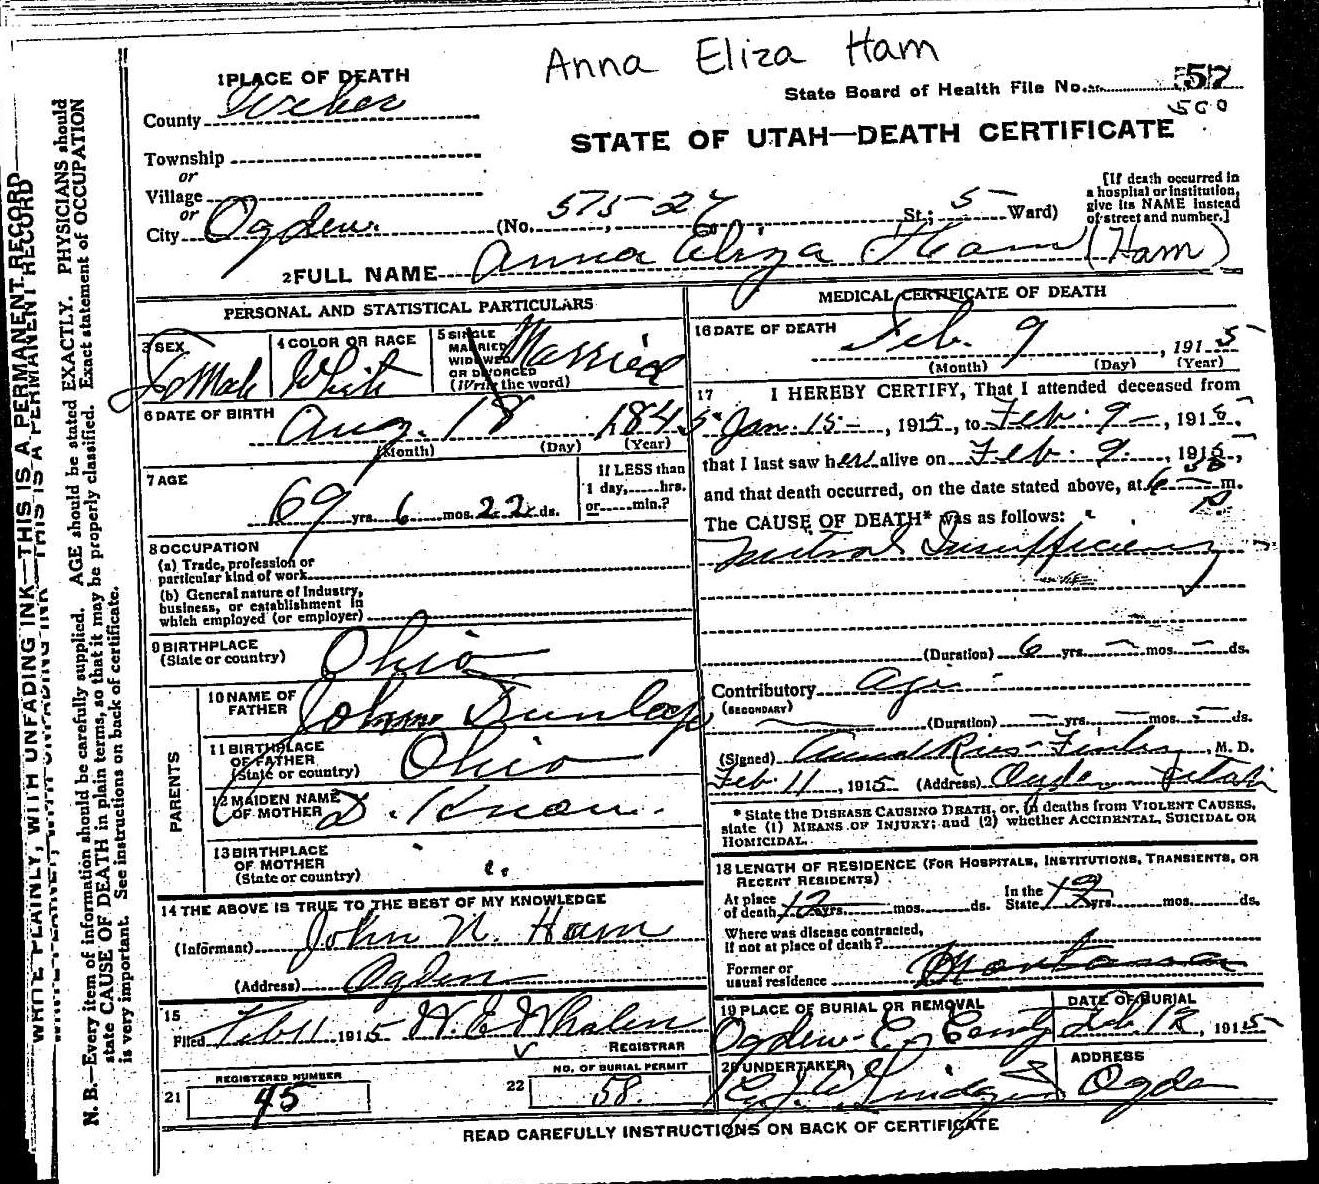 Anna Eliza Ham
1 PLACE OF DEATH
County Weber
State Board of Health File No. 57
500
STATE OF UTAH—DEATH CERTIFICATE
Township
or
Village
or
City Ogden (No. 575-27 St.; 5 Ward)
[If death occurred in
a hospital or institution,
give its NAME instead
of street and number.]
2 FULL NAME Anna Eliza Ham (Ham)
PERSONAL AND STATISTICAL PARTICULARS
3 SEX Female
4 COLOR OR RACE White
5 SINGLE
MARRIED
WIDOWED
OR DIVORCED
(Write the word)
Married
6 DATE OF BIRTH
Aug. 18 1845
(Month) (Day) (Year)
7 AGE
69 yrs. 6 mos. 22 ds.
If LESS than
1 day, hrs.
or min.?
8 OCCUPATION
(a) Trade, profession or
particular kind of work
(b) General nature of Industry,
business, or establishment in
which employed (or employer)
9 BIRTHPLACE
(State or country) Ohio
PARENTS
10 NAME OF
FATHER John Dunlap
11 BIRTHPLACE
OF FATHER
(State or country) Ohio
12 MAIDEN NAME
OF MOTHER D. Know.
13 BIRTHPLACE
OF MOTHER
(State or country) " "
14 THE ABOVE IS TRUE TO THE BEST OF MY KNOWLEDGE
(Informant) John N. Ham
(Address) Ogden
15
Filed Feb 11 1915 W. E. Whalen
REGISTRAR
21 REGISTERED NUMBER 45
22 NO. OF BURIAL PERMIT 58.
MEDICAL CERTIFICATE OF DEATH
16 DATE OF DEATH
Feb. 9, 1915
(Month) (Day) (Year)
17 I HEREBY CERTIFY, That I attended deceased from
Jan. 15-, 1915, to Feb. 9-, 1915,
that I last saw her alive on Feb. 9., 1915,
and that death occurred, on the date stated above, at 6 50 P m.
The CAUSE OF DEATH* was as follows:
Mitral Insufficiency
(Duration) 6 yrs. — mos. — ds.
Contributory Age
(SECONDARY)
(Duration) — yrs. — mos. — ds.
(Signed) Anna Ries-Finley, M. D.
Feb 11, 1915 (Address) Ogden Utah
* State the DISEASE CAUSING DEATH, or, in deaths from VIOLENT CAUSES,
state (1) MEANS OF INJURY; and (2) whether ACCIDENTAL, SUICIDAL OR
HOMICIDAL.
18 LENGTH OF RESIDENCE (FOR HOSPITALS, INSTITUTIONS, TRANSIENTS, OR
RECENT RESIDENTS)
At place
of death 12 yrs. mos. ds. In the
State 12 yrs. mos. ds.
Where was disease contracted,
if not at place of death?
Former or
usual residence
19 PLACE OF BURIAL OR REMOVAL
Ogden C. Cemty
DATE OF BURIAL
Feb. 12, 1915
20 UNDERTAKER
ADDRESS
Ogden
READ CAREFULLY INSTRUCTIONS ON BACK OF CERTIFICATE
WRITE PLAINLY, WITH UNFADING INK—THIS IS A PERMANENT RECORD
N. B.—Every item of information should be carefully supplied. AGE should be stated EXACTLY. PHYSICIANS should
state CAUSE OF DEATH in plain terms, so that it may be properly classified. Exact statement of OCCUPATION
is very important. See instructions on back of certificate.